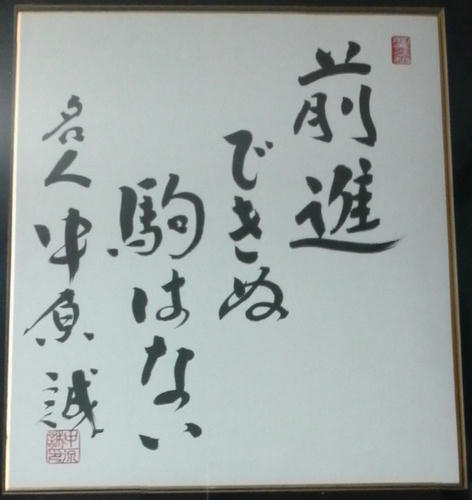 前進
できぬ
駒はない
名人中原誠